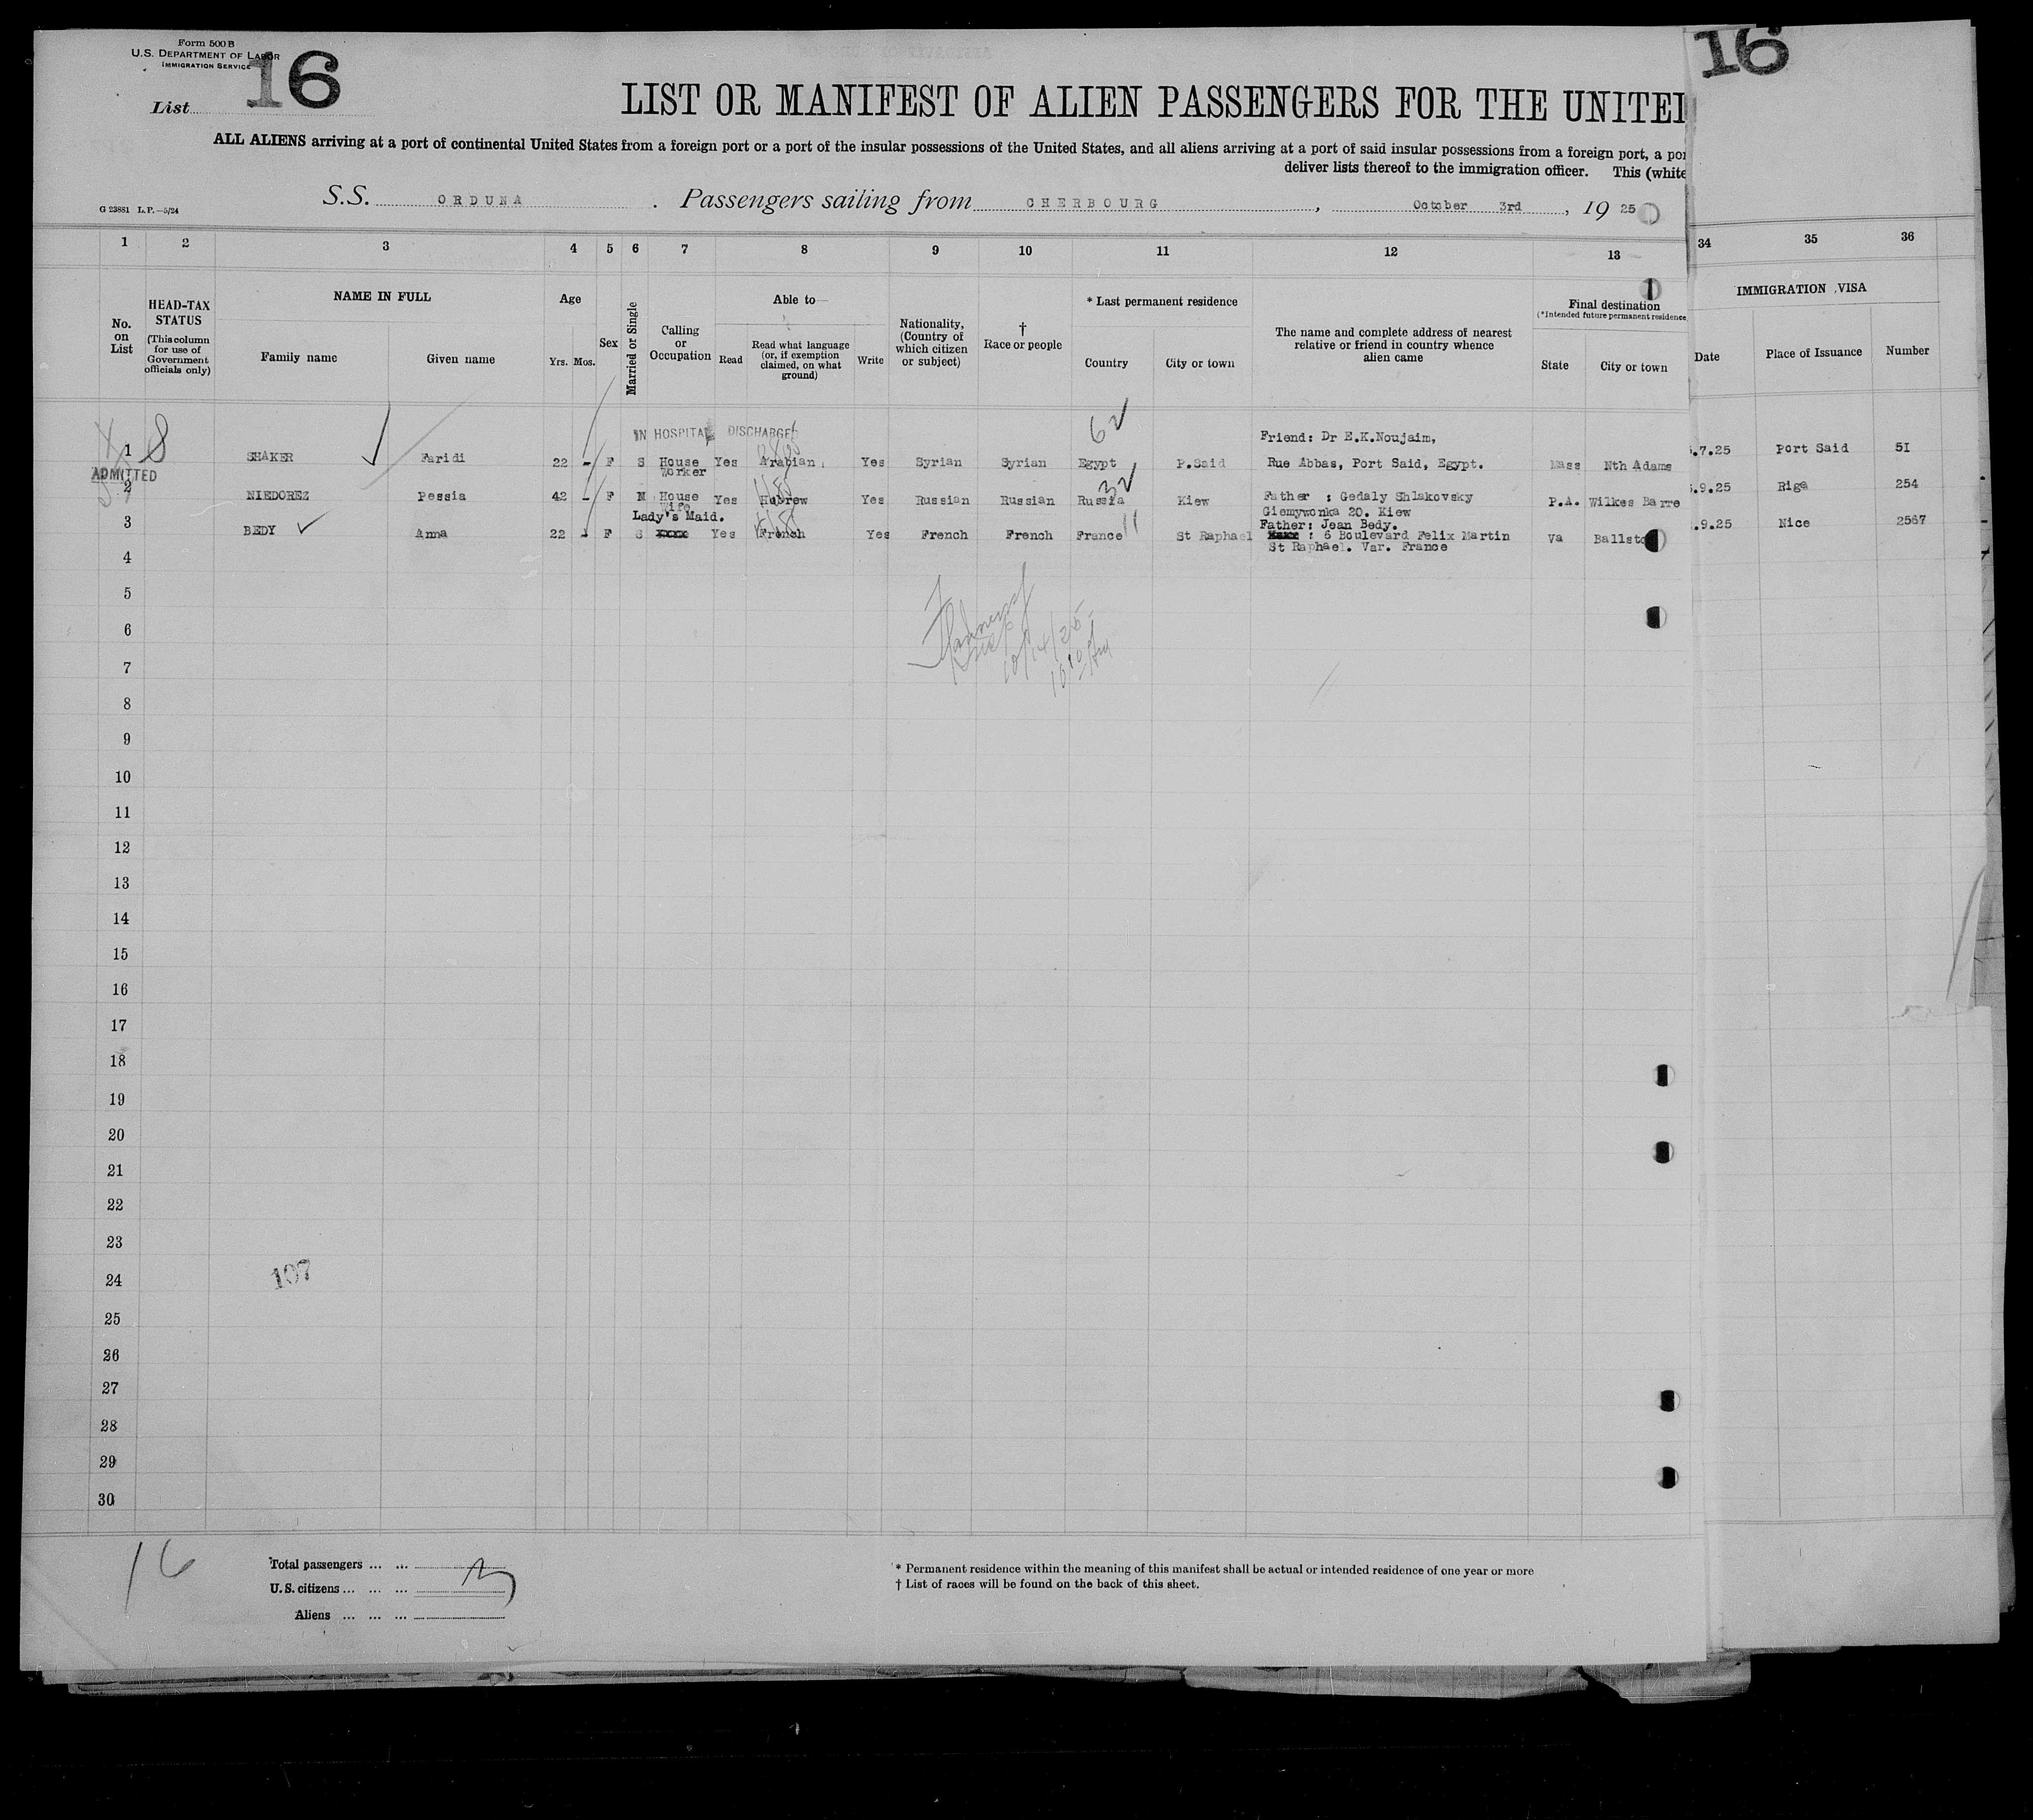 Form 500 B
U.S. DEPARTMENT OF LABOR
IMMIGRATION SERVICE
16
16
List
LIST OR MANIFEST OF ALIEN PASSENGERS FOR THE UNITED
ALL ALIENS arriving at a port of continental United States from a foreign port or a port of the insular possessions of the United States, and all aliens arriving at a port of said insular possessions from a foreign port, a por
deliver lists thereof to the immigration officer. This (white
S.S. ORDUNA . Passengers sailing from CHERBOURG , October 3rd , 19 25
G 23881 L.P.—5/24
1 2 3 4 5 6 7 8 9 10 11 12 13 34 35 36
No. on List
HEAD-TAX STATUS
(This column for use of Government officials only)
NAME IN FULL
Family name Given name
Age
Yrs. Mos.
Sex
Married or Single
Calling or Occupation
Able to
Read
Read what language (or, if exemption claimed, on what ground)
Write
Nationality, (Country of which citizen or subject)
† Race or people
* Last permanent residence
Country City or town
The name and complete address of nearest relative or friend in country whence alien came
Final destination
(*Intended future permanent residence
State City or town
IMMIGRATION VISA
Date Place of Issuance Number
IN HOSPITAL DISCHARGED
62
Friend: Dr E.K.Noujaim,
1 8 SHAKER Faridi 22 - F S House Worker Yes Arabian Yes Syrian Syrian Egypt P.Said Rue Abbas, Port Said, Egypt. Mass Nth Adams .7.25 Port Said 5I
ADMITTED
32
2 NIEDOREZ Pessia 42 - F M House Wife Yes Hebrew Yes Russian Russian Russia Kiew Father : Gedaly Shlakovsky P.A. Wilkes Barre .9.25 Riga 254
Giemywonka 20. Kiew
Lady's Maid.
11
Father: Jean Bedy.
3 BEDY Anna 22 - F S xxxx Yes French Yes French French France St Raphael : 6 Boulevard Felix Martin Va Ballsto .9.25 Nice 2567
St Raphael. Var. France
4
5
6
10/14/25
7
8
9
10
11
12
13
14
15
16
17
18
19
20
21
22
23
24 107
25
26
27
28
29
30
16
Total passengers ... ...
U.S. citizens ... ... ...
Aliens ... ... ...
* Permanent residence within the meaning of this manifest shall be actual or intended residence of one year or more
† List of races will be found on the back of this sheet.